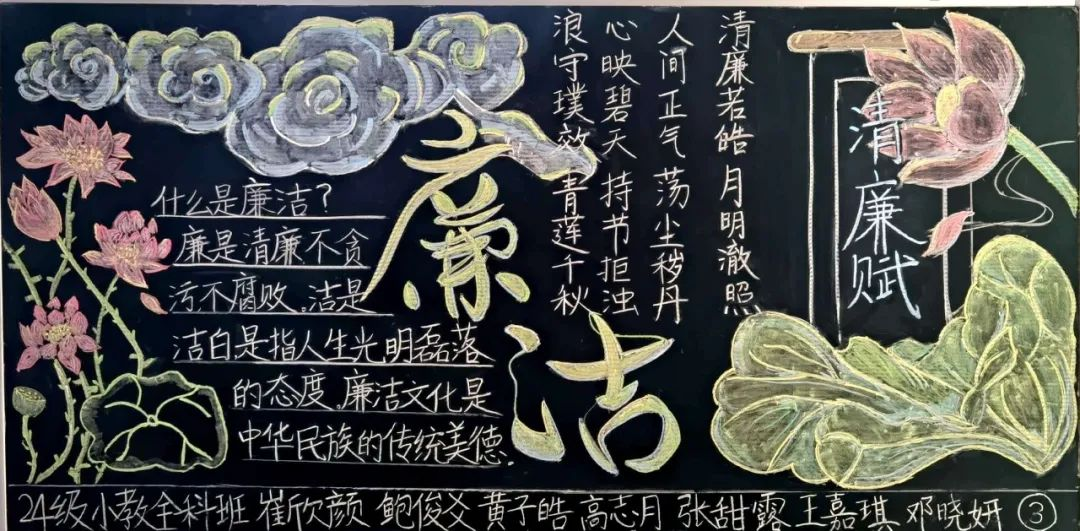 清廉赋
清廉若皓月明澈照
人间正气荡尘秽丹
心映碧天持节拒浊
浪守璞效青莲千秋
廉洁
什么是廉洁？
廉是清廉不贪
污不腐败。洁是
洁白是指人生光明磊落
的态度。廉洁文化是
中华民族的传统美德.
24级小教全科班 崔欣颜 鲍俊爻 黄子皓 高志月 张甜露 王嘉琪 邓晓妍 ③